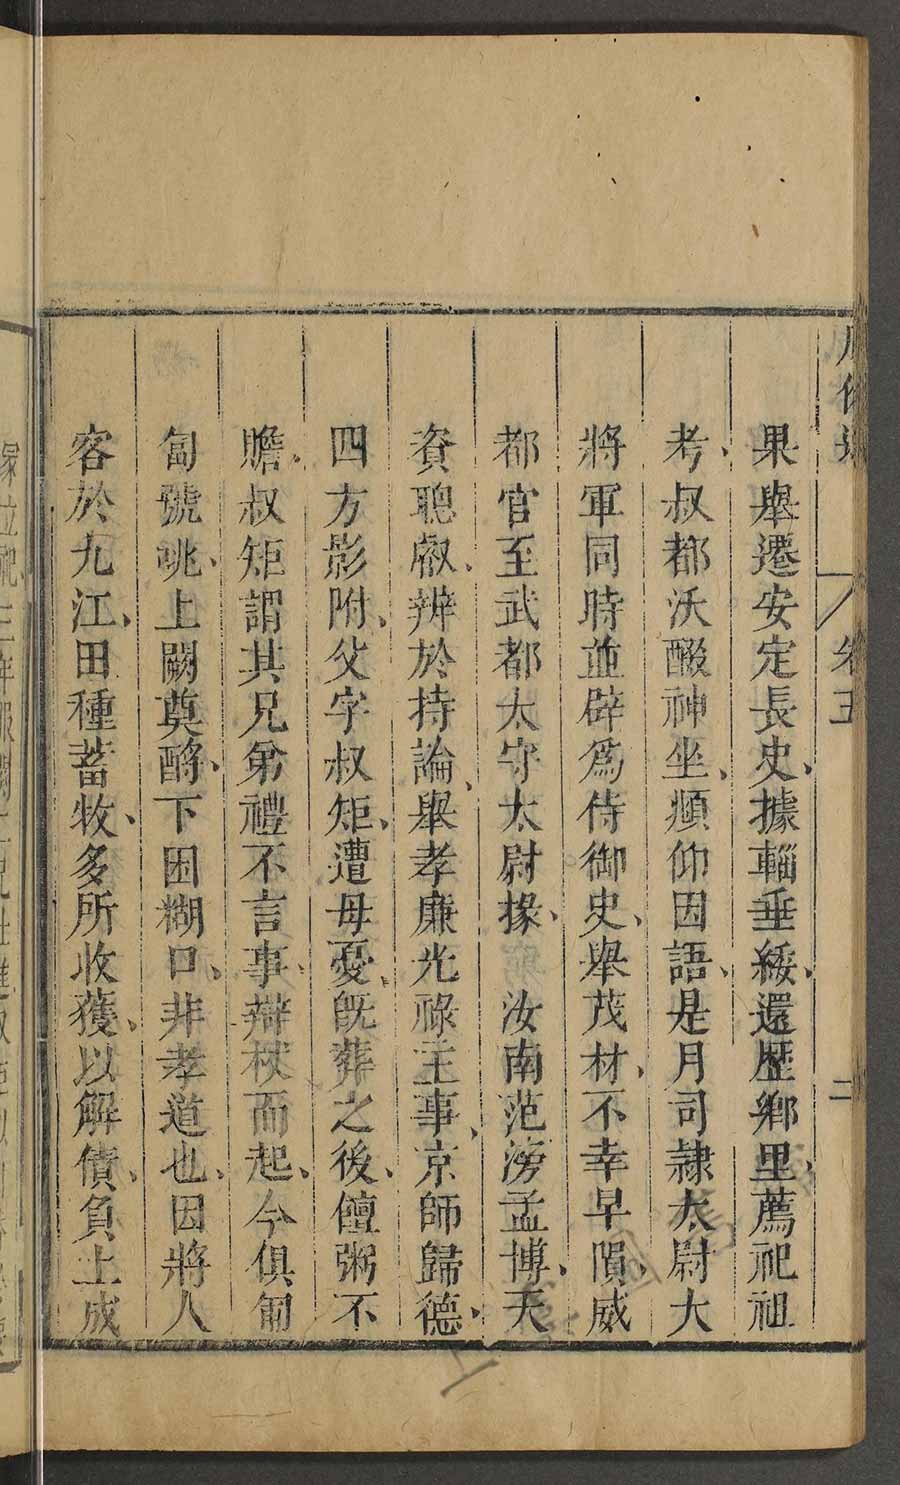 風俗通 卷五 二
果舉遷安定長史、據輜垂緌、還歷鄉里、薦祀祖
考、叔都沃醊神坐、頫仰因語、是月司隷太尉大
將軍同時並辟爲侍御史、舉茂材、不幸早隕、威
都官至武都太守太尉掾、 汝南范滂孟博、天
資聰叡、辨於持論、舉孝廉光祿主事、京師歸德、
四方影附、父字叔矩、遭母憂、旣葬之後、饘粥不
贍、叔矩謂其兄弟禮不言事、辯杖而起、今俱匍
匐號咷、上闕奠酹、下困糊口、非孝道也、因將人
客於九江、田種蓄牧、多所收獲、以解債負土成